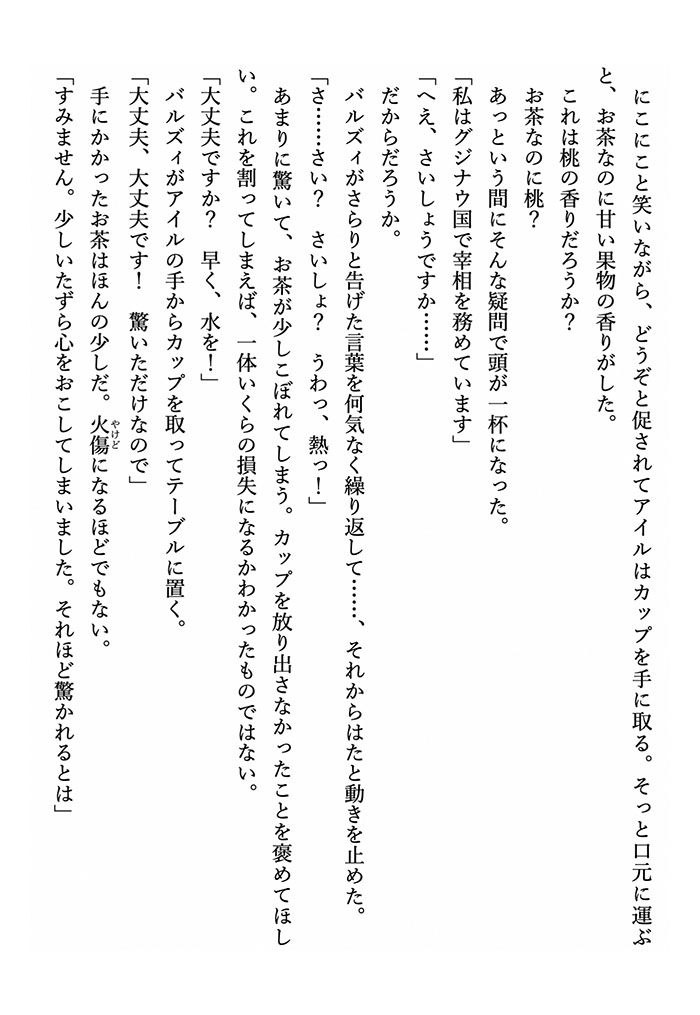 にこにこと笑いながら、どうぞと促されてアイルはカップを手に取る。そっと口元に運ぶ
と、お茶なのに甘い果物の香りがした。
　これは桃の香りだろうか？
　お茶なのに桃？
　あっという間にそんな疑問で頭が一杯になった。
「私はグジナウ国で宰相を務めています」
「へえ、さいしょうですか……」
だからだろうか。
　バルズィがさらりと告げた言葉を何気なく繰り返して……、それからはたと動きを止めた。
「さ……さい？　さいしょ？　うわっ、熱っ！」
　あまりに驚いて、お茶が少しこぼれてしまう。カップを放り出さなかったことを褒めてほし
い。これを割ってしまえば、一体いくらの損失になるかわかったものではない。
「大丈夫ですか？　早く、水を！」
　バルズィがアイルの手からカップを取ってテーブルに置く。
「大丈夫、大丈夫です！　驚いただけなので」
　手にかかったお茶はほんの少しだ。火傷やけどになるほどでもない。
「すみません。少しいたずら心をおこしてしまいました。それほど驚かれるとは」